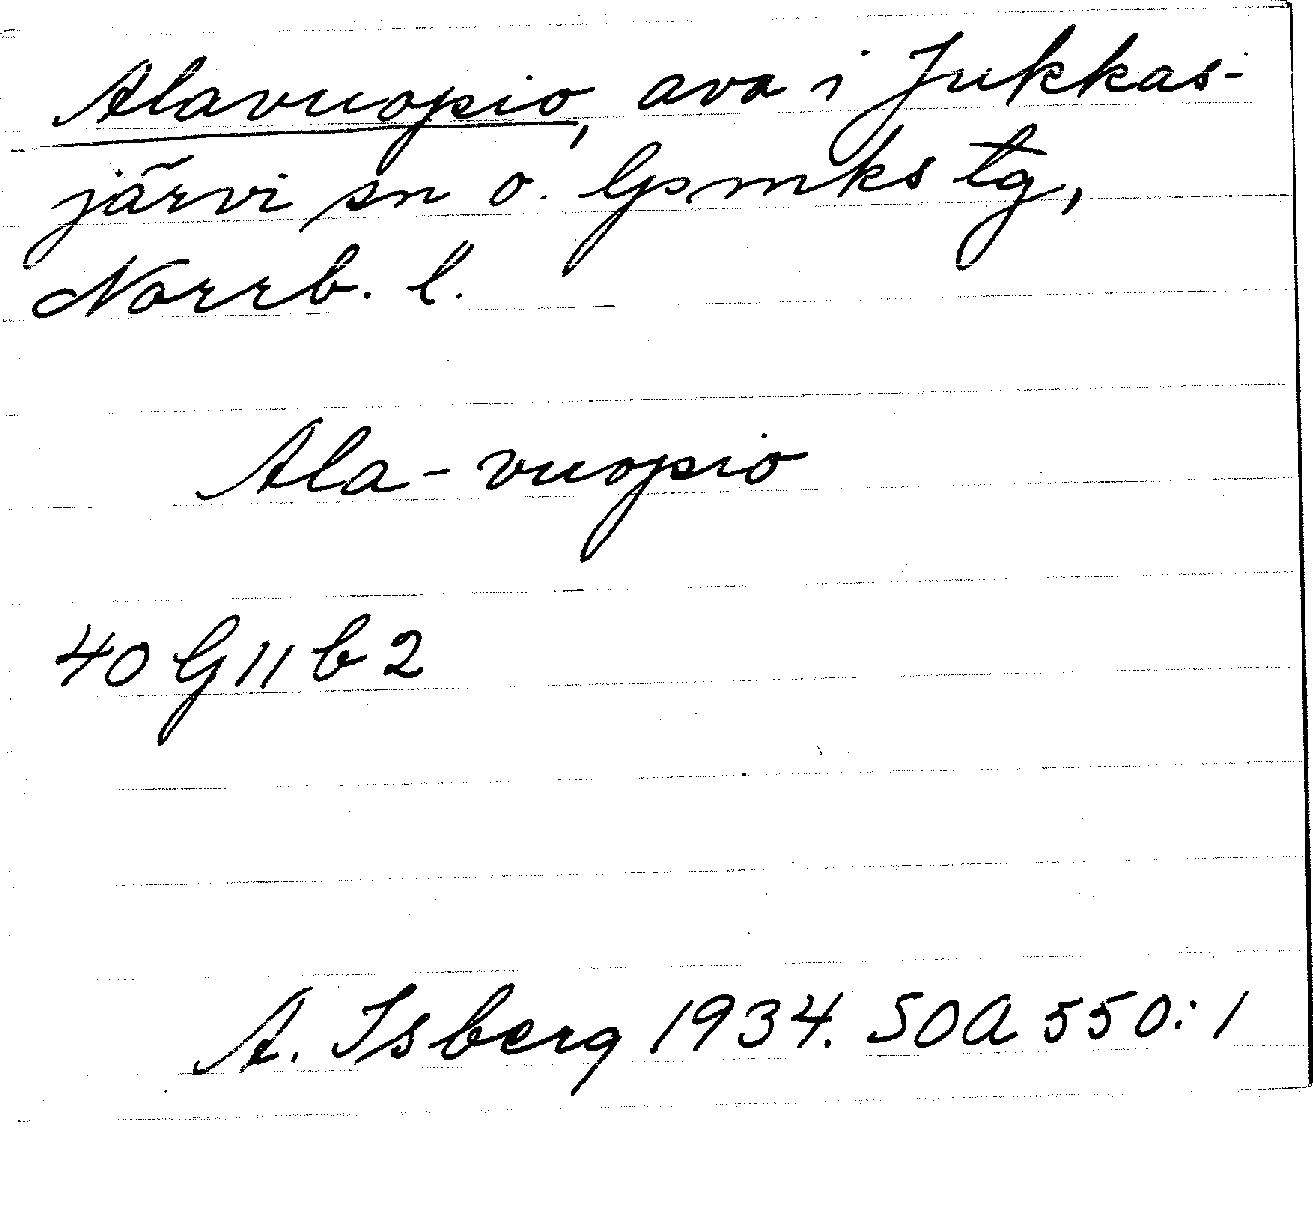 Alavuopio, ava i Jukkas-
järvi sn o. Gsmks tg,
Norrb. l.
Ala-vuopio
40 G 11 b 2
A. Isberg 1934. SOA 550:1